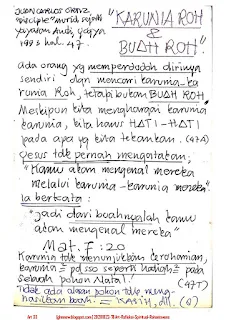 JUAN CARLOS ORTIZ
"Disciple" murid sejati
yayasan Andi, yogya
1993 hal. 47.
"KARUNIA ROH
&
BUAH ROH".
ada orang yg memperbodoh dirinya
sendiri dan mencari karunia-ka
runia Roh, tetapi bukan BUAH ROH
Meskipun kita menghargai karunia
karunia, kita harus HATI-HATI
pada apa yg kita tekankan. (47A)
Jesus tdk pernah mengatakan;
"Kamu akan mengenal mereka
melalui karunia-karunia mereka"
Ia berkata:
"jadi dari buahnyalah kamu
akan mengenal mereka"
Mat. 7:20
Karunia tdk menunjukkan kerohanian,
karunia = seperti hadiah = pada
sebuah pohon Natal! (47T)
Tdk ada alasan pohon tdk meng-
hasilkan buah = KASIH, dll.